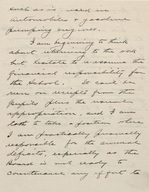 such as is used in
automobiles & gasoline
pumping engines.
I am beginning to think
about returning to the
but hesitate to assume the
financial responsibility for
the School. It can't be
run on receipts from the
Pupils plus the
appropriation, and I am
loth to take a position where
I am practically financially
responsible for the annual
deficits, especially as the
Board is not ready to
countenance any effort to